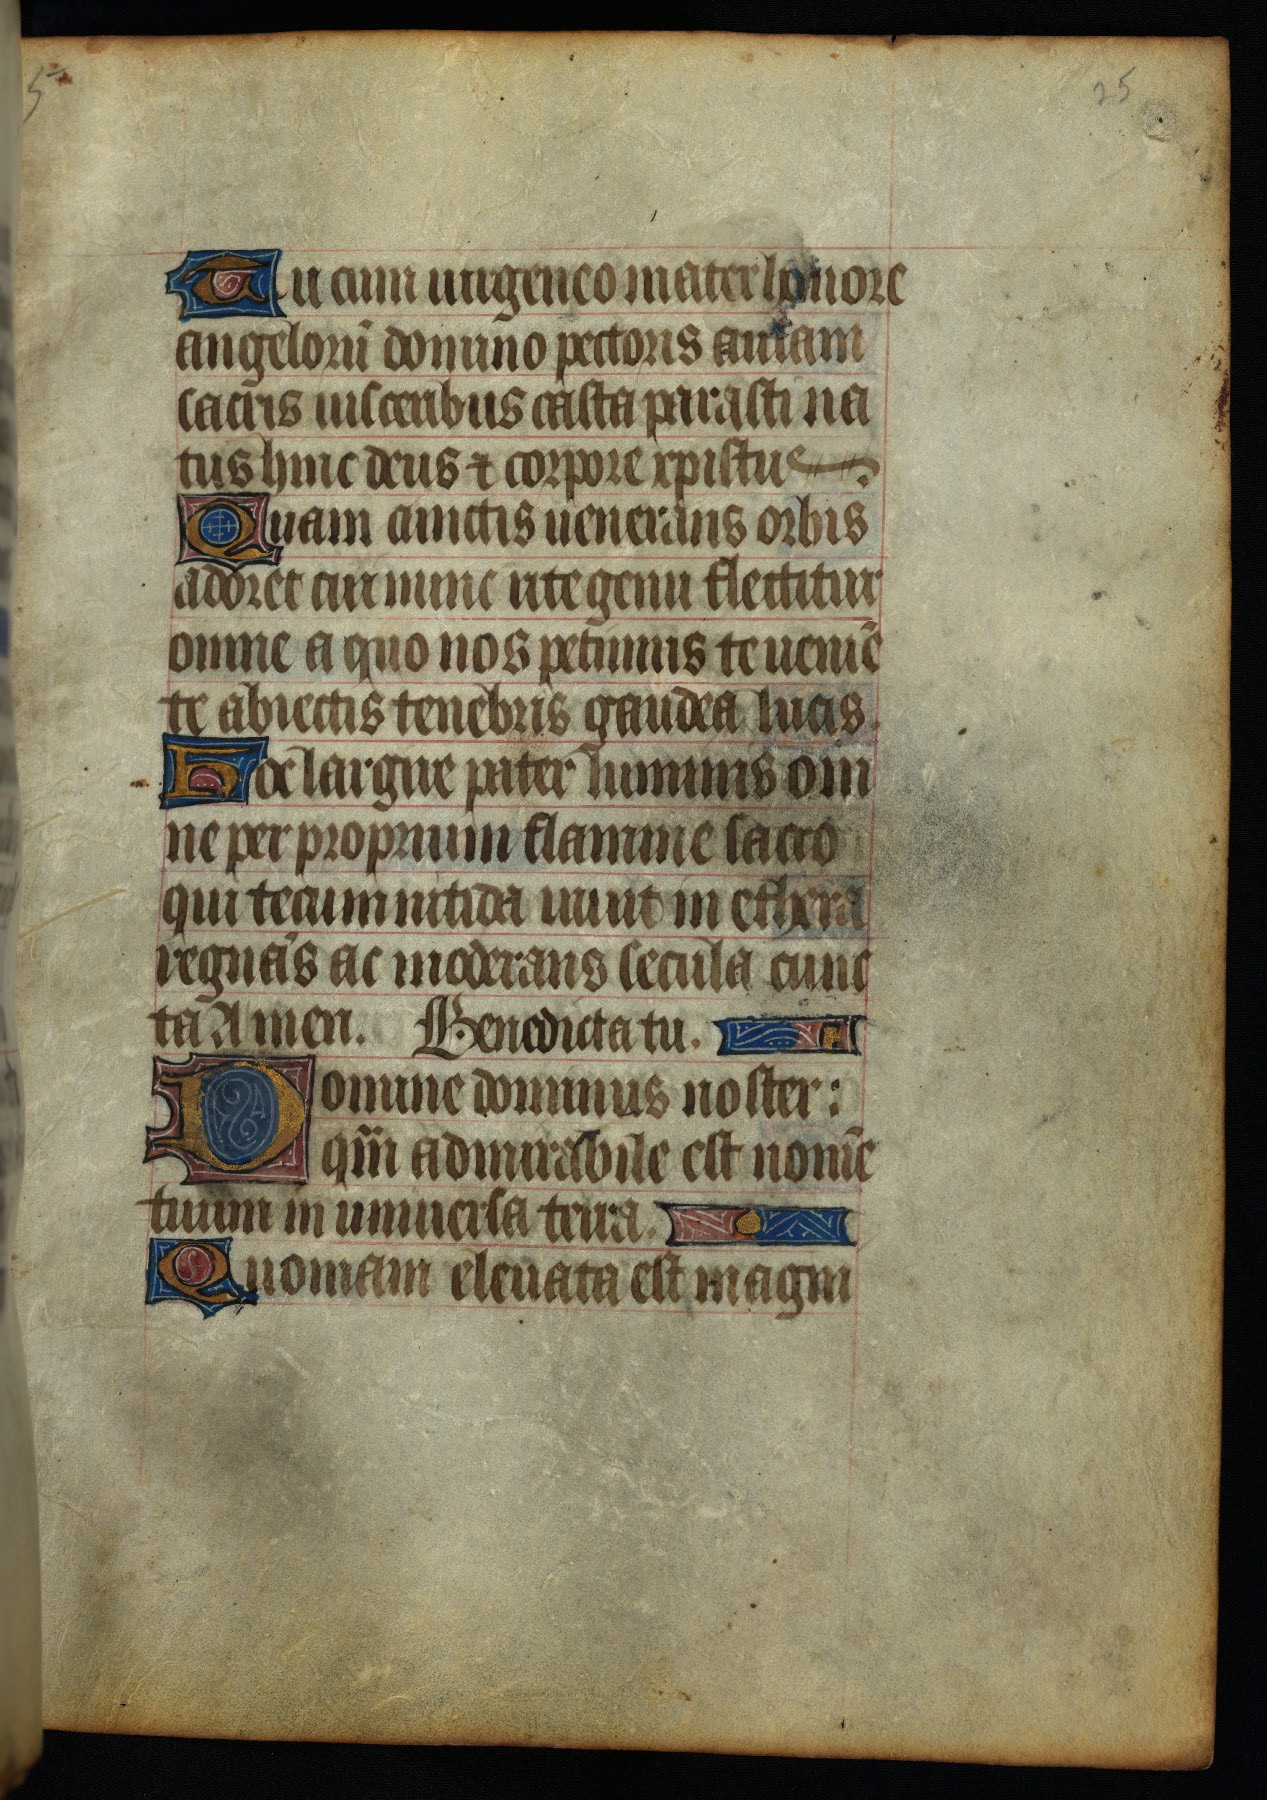 25
Tu cum uirgeneo mater honore
angeloru̅ domino pectoris aulam
sacris uisceribus casta parasti na
tus hinc deus ⁊ corpore xpistus
Quam cunctis uenerans orbis
adoret cui nunc rite genu flectitur
omne a quo nos petimus te uenie̅
te abiectis tenebris gaudea lucis.
Hoc largire pater luminis om
ne per proprium flamine sacro
qui tecum nitida uiuit in ethera
regna̅s ac moderans secula cunc
ta Amen. Benedicta tu.
Domine dominus noster:
qm̅ admirabile est nome̅
tuum in uniuersa terra.
Quoniam eleuata est magni